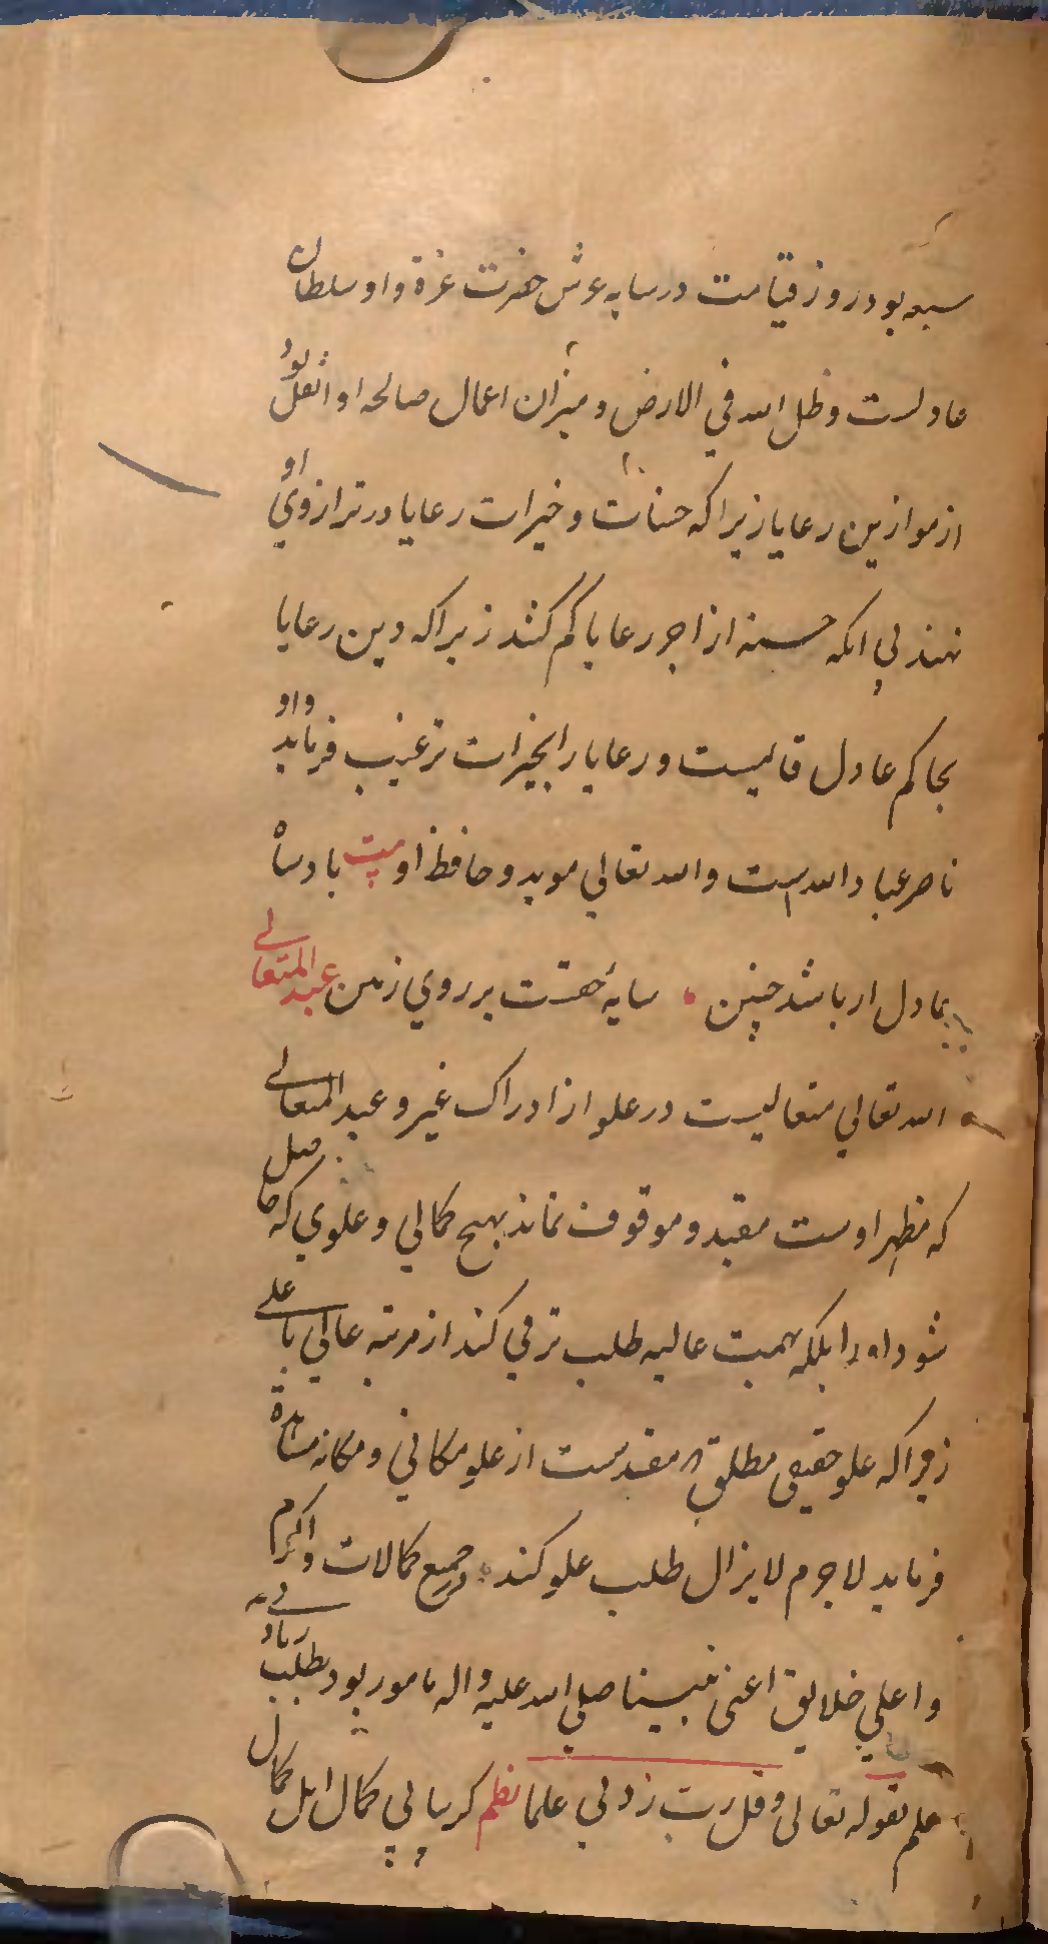 سبعه بود روز قیامت در سایه عرش حضرت عزة و او سلطان
عادلست و ظل الله في الارض و میزان اعمال صالحه او اثقل بود
از موازین رعایا زیرا که حسنات و خیرات رعایا در ترازوي او
نهند بي انکه حسنه از اجر رعایا کم کنند زیرا که دین رعایا
بحاکم عادل قایمست و رعایا را بخیرات ترغیب فرماید و او
ناصر عباد الله است و الله تعالي موید و حافظ او بیت بادساه
عادل ار باشد چنین سایه حقست بر روي زمین عبد المتعالے
الله تعالي متعالیست در علو از ادراک غیر و عبد المتعالے
که مظهر اوست مقید و موقوف نماند بهیچ کمالي و علوي که حاصل
شود او را بلکه بهمت عالیه طلب ترقي کند از مرتبه عالي باعلے
زیرا که علو حقیقی مطلق مقدست از علو مکاني و مکانه مشاهدة
فرماید لاجرم لا یزال طلب علو کند در جمیع کمالات و اکرم
و اعلي خلایق اعنی نبینا صلي الله علیه و اله مامور بود بطلب زیادے
علم بقوله تعالی و قل رب زدني علما نظم کر بیابي کمال اهل کمال